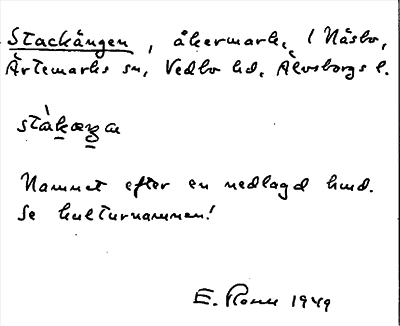 Stackängen, åkermark, i Näsbo,
Ärtemarks sn, Vedbo hd, Älvsborgs l.
Namnet efter en nedlagd hmd.
Se kulturnamnen!
E. 1949